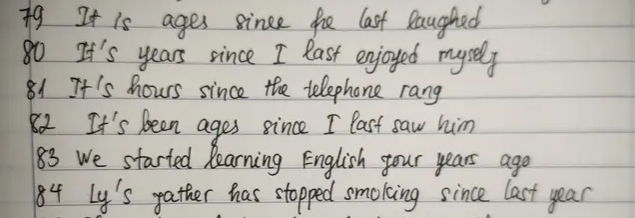 79 It is ages since he last laughed
80 It's years since I last enjoyed myself
81 It's hours since the telephone rang
82 It's been ages since I last saw him
83 We started learning English four years ago
84 Ly's father has stopped smoking since last year